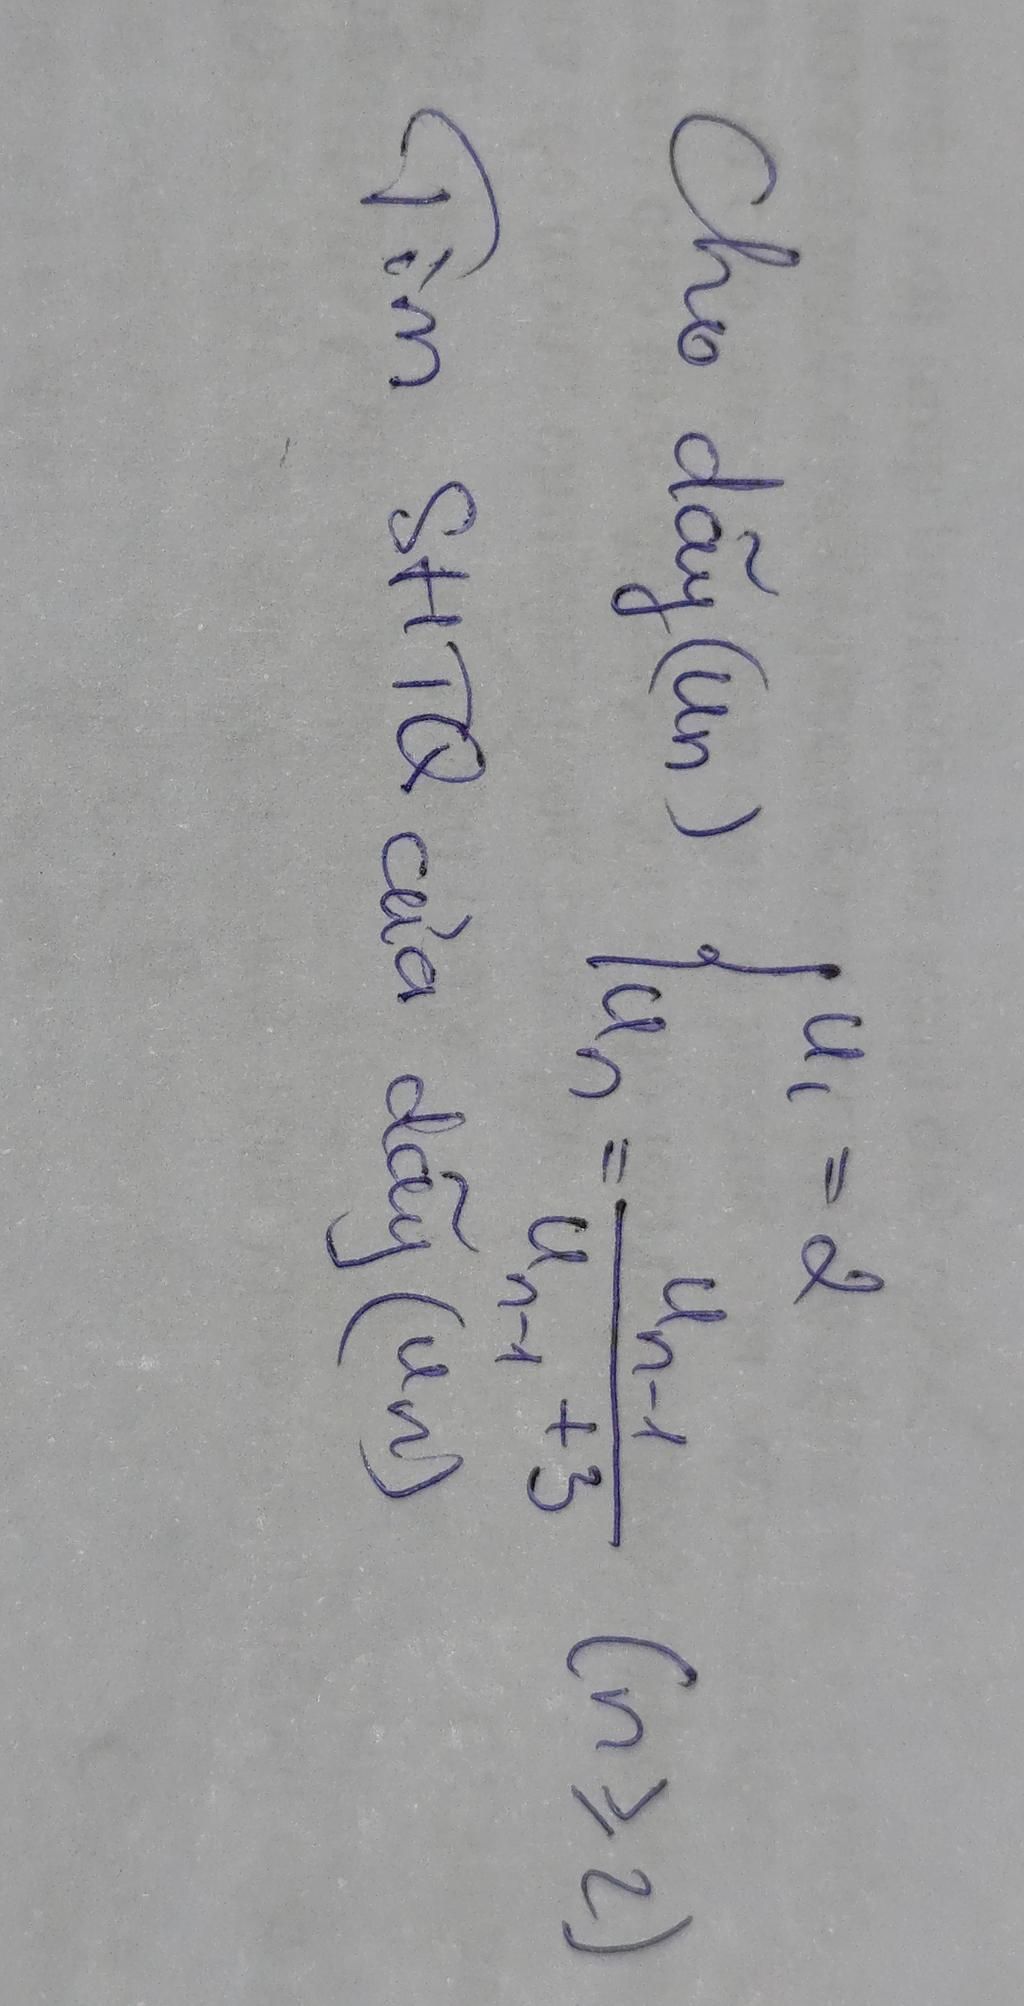 Cho dãy (un) { u₁ = 2
uₙ = uₙ₋₁ / (uₙ₋₁ + 3) (n ≥ 2)
Tìm SHTQ của dãy (un)